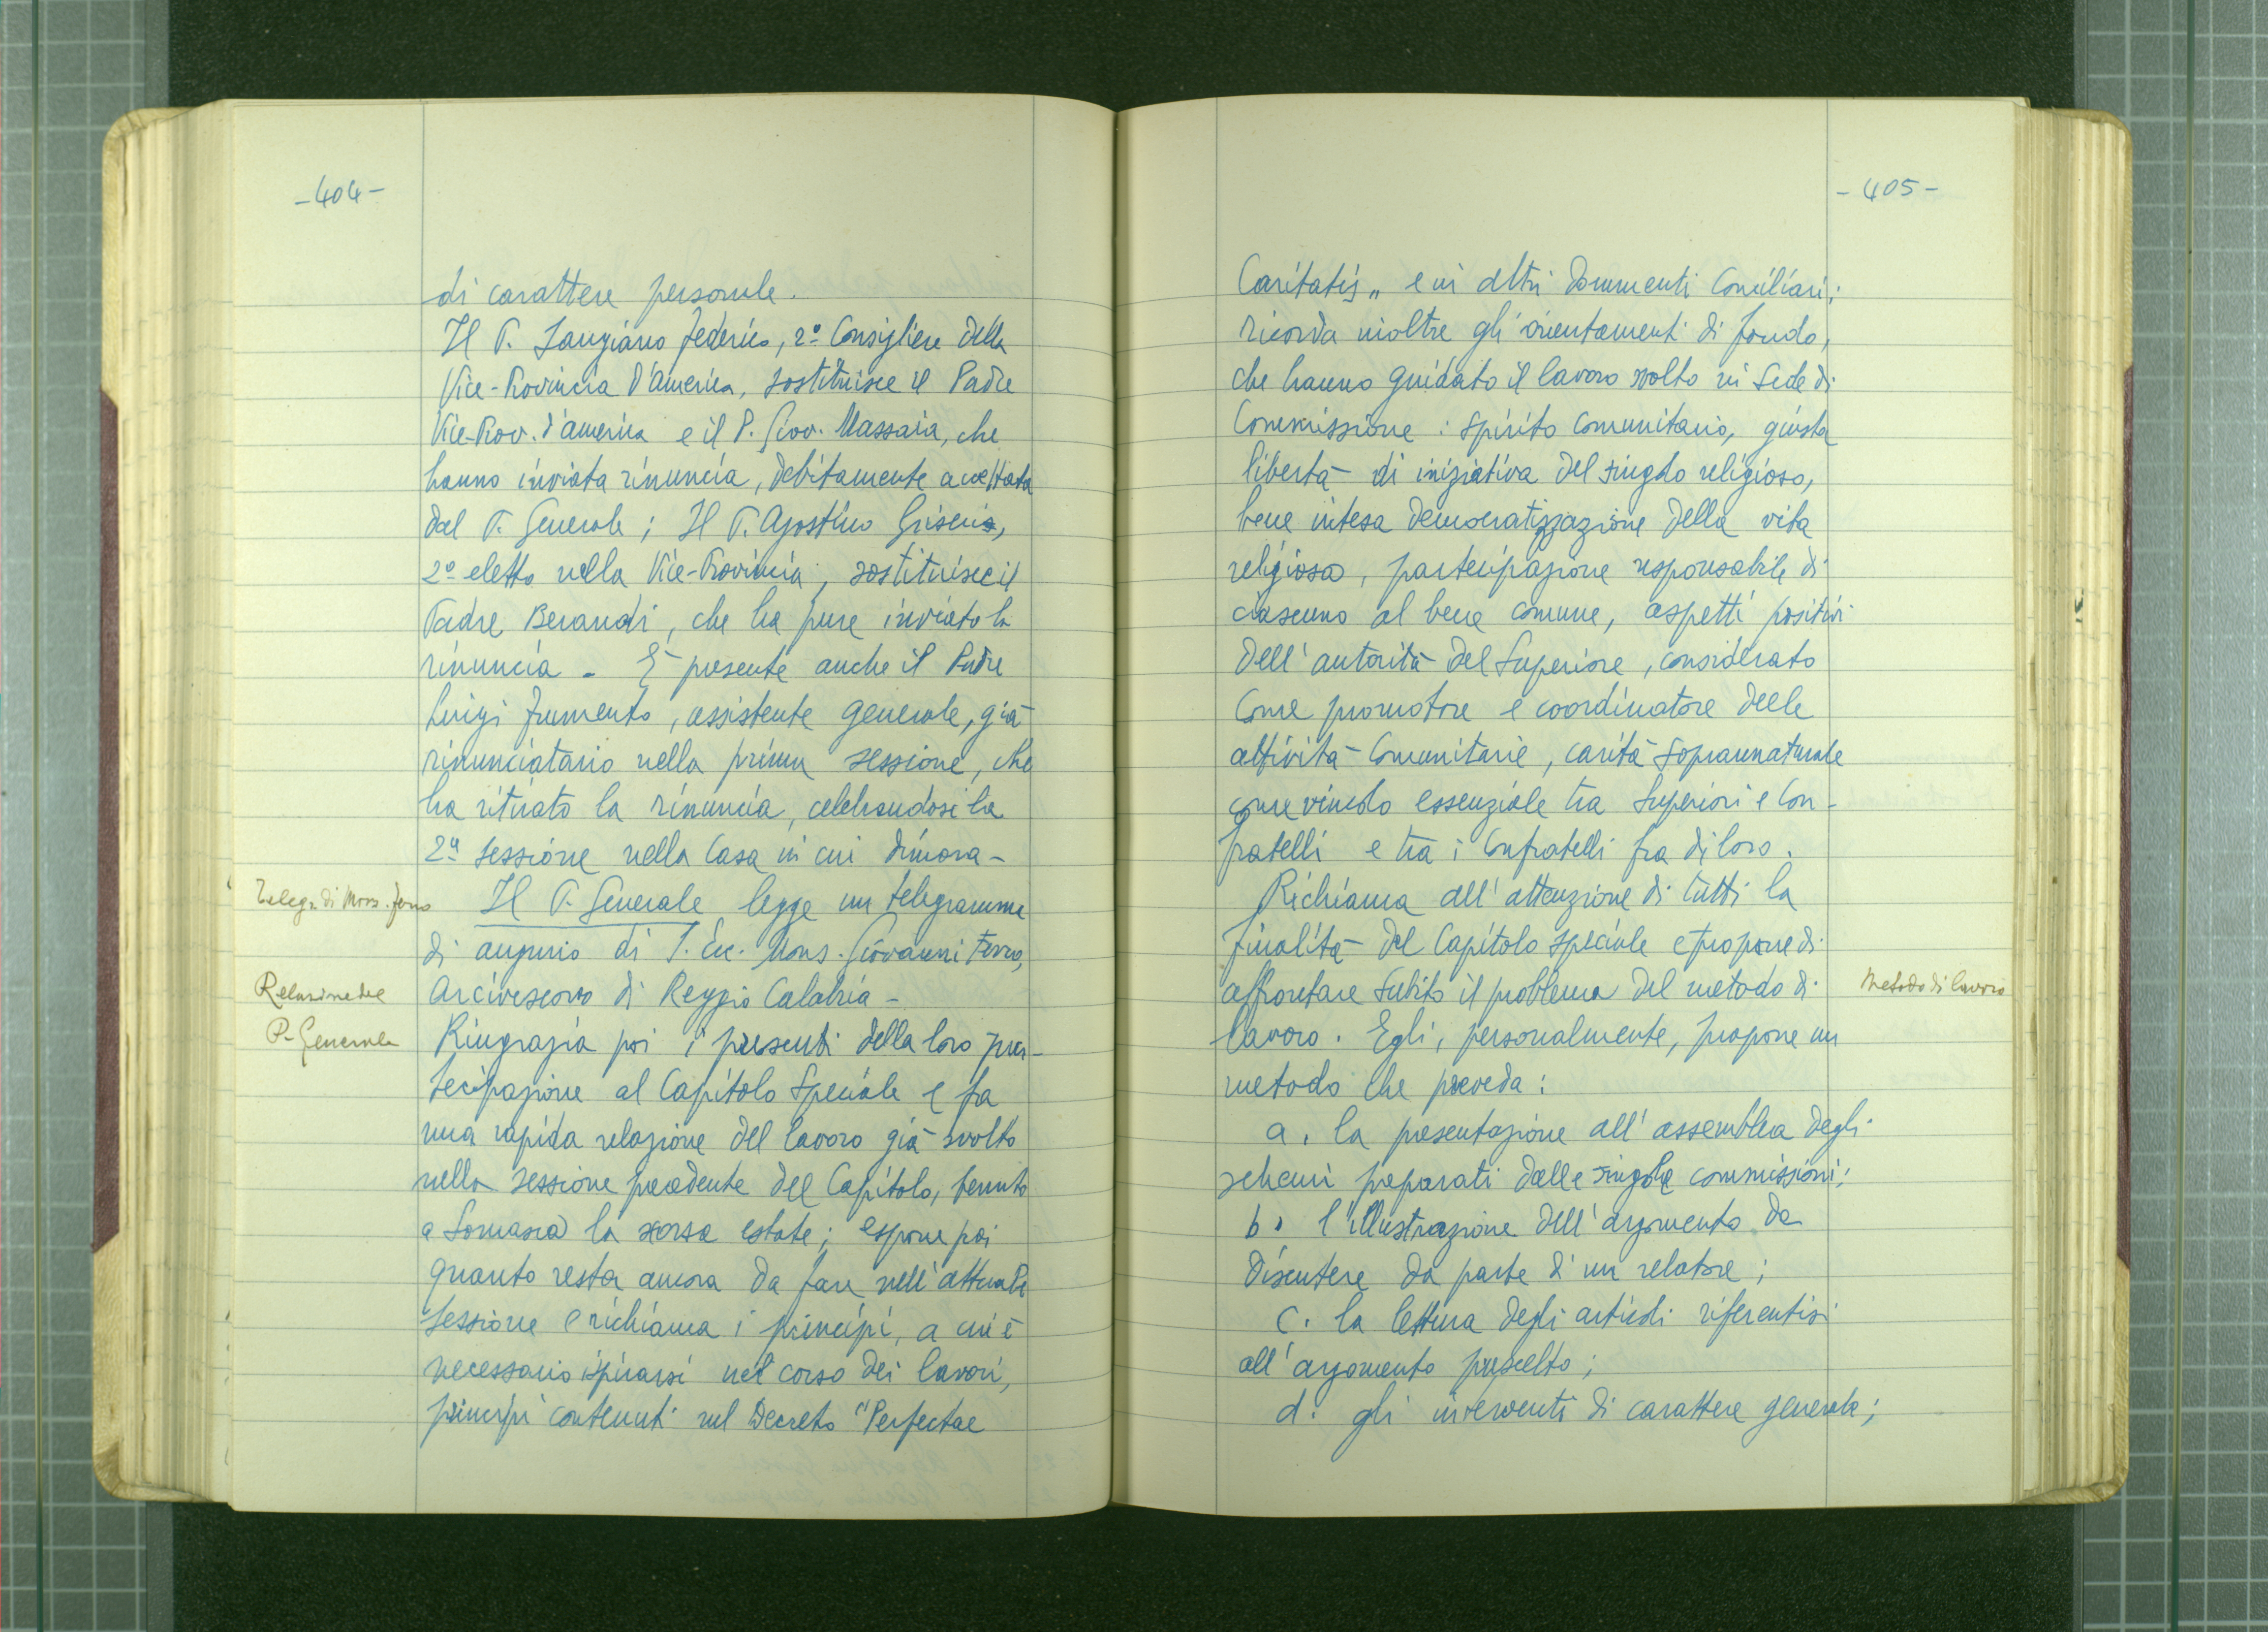 -404-
di carattere personale.
Il P. Sangiano Federico, 2º Consigliere della
Vice-Provincia d'America, sostituisce il Padre
Vice-Prov. d'America e il P. Giov. Massaia, che
hanno inviata rinuncia, debitamente accettata
dal P. Generale; Il P. Agostino Griseri,
2º eletto nella Vice-Provincia, sostituisce il
Padre Beraudi, che ha pure inviato la
rinuncia - È presente anche il Padre
Luigi Frumento, assistente generale, già
rinunciatario nella prima sessione, che
ha ritirato la rinuncia, celebrandosi la
2ª sessione nella Casa in cui dimora -
Telegr. di Mons. Ferro
Il P. Generale legge un telegramma
di augurio di S. Ecc. Mons. Giovanni Ferro,
Relazione del
P. Generale
Arcivescovo di Reggio Calabria -
Ringrazia poi i presenti della loro par-
tecipazione al Capitolo Speciale e fa
una rapida relazione del lavoro già svolto
nella sessione precedente del Capitolo, tenuto
a Somasca la scorsa estate; espone poi
quanto resta ancora da fare nell'attuale
sessione e richiama i principi, a cui è
necessario ispirarsi nel corso dei lavori,
principi contenuti nel Decreto "Perfectae
-405-
Caritatis" e in altri Documenti Conciliari;
ricorda inoltre gli orientamenti di fondo,
che hanno guidato il lavoro svolto in sede di
Commissione: spirito comunitario, giusta
libertà di iniziativa del singolo religioso,
bene intesa democratizzazione della vita
religiosa, partecipazione responsabile di
ciascuno al bene comune, aspetti positivi
dell'autorità del Superiore, considerato
come promotore e coordinatore delle
attività comunitarie, carità soprannaturale
come vincolo essenziale tra Superiori e Con-
fratelli e tra i Confratelli fra di loro.
Richiama all'attenzione di tutti la
finalità del Capitolo speciale e propone di
affrontare subito il problema del metodo di
Metodo di lavoro
lavoro. Egli, personalmente, propone un
metodo che preveda:
a. la presentazione all'assemblea degli
schemi preparati dalle singole commissioni;
b. l'illustrazione dell'argomento da
discutere da parte d'un relatore;
c. la lettura degli articoli riferentisi
all'argomento prescelto;
d. gli interventi di carattere generale;